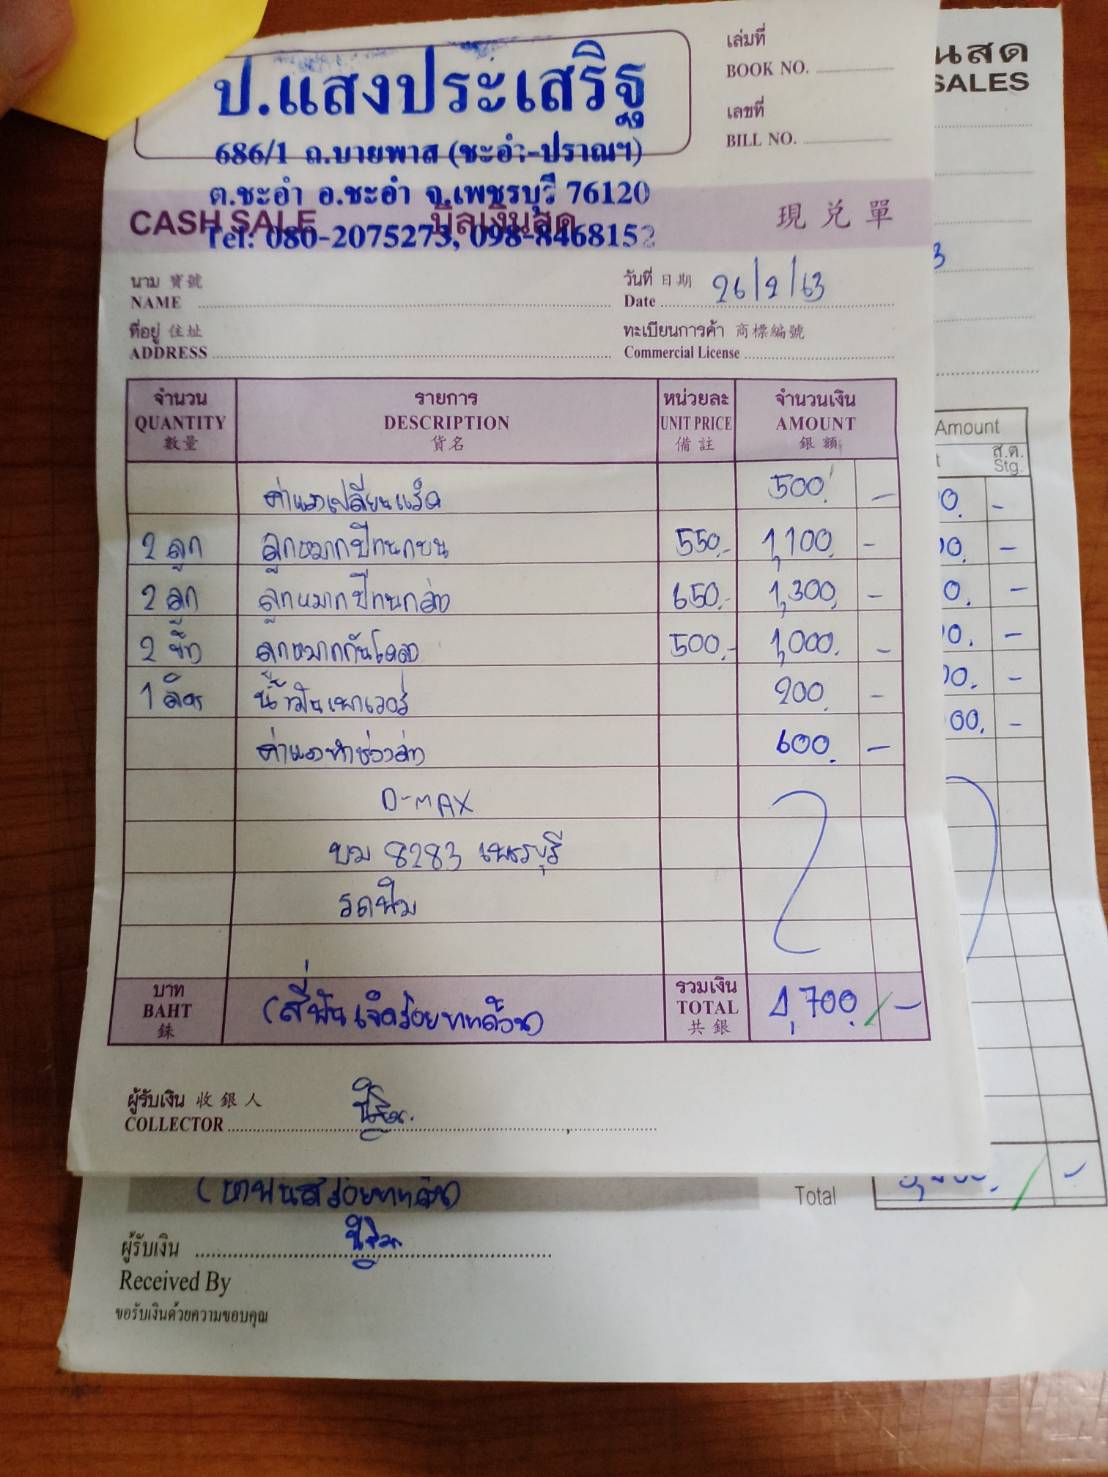 ป.แสงประเสริฐ
686/1 ถ.บายพาส (ชะอำ-ปราณฯ)
ต.ชะอำ อ.ชะอำ จ.เพชรบุรี 76120
Tel: 080-2075273, 098-8468152
เล่มที่
BOOK NO.
เลขที่
BILL NO.
CASH SALE บิลเงินสด 現兑單
นาม 寶號
NAME
วันที่ 日期
Date 26/2/63
ที่อยู่ 住址
ADDRESS
ทะเบียนการค้า 商標編號
Commercial License
จำนวน รายการ หน่วยละ จำนวนเงิน
QUANTITY DESCRIPTION UNIT PRICE AMOUNT
數量 貨名 備註 銀額
ค่าแรงเปลี่ยนแร็ค 500.-
2 ลูก ลูกหมากปีกนกบน 550.- 1,100.-
2 ลูก ลูกหมากปีกนกล่าง 650.- 1,300.-
2 ลูกหมากกันโคลง 500.- 1,000.-
1 ลิตร น้ำมันเพาเวอร์ 200.-
ค่าแรงทำช่วงล่าง 600.-
D-MAX
บม 8283 เพชรบุรี
บาท
BAHT
銖
(สี่พันเจ็ดร้อยบาทถ้วน)
รวมเงิน
TOTAL
共銀
4,700.-
ผู้รับเงิน 收銀人
COLLECTOR
นสด
SALES
3
Amount
ส.ต.
Stg.
Total
ผู้รับเงิน
Received By
ขอรับเงินด้วยความขอบคุณ